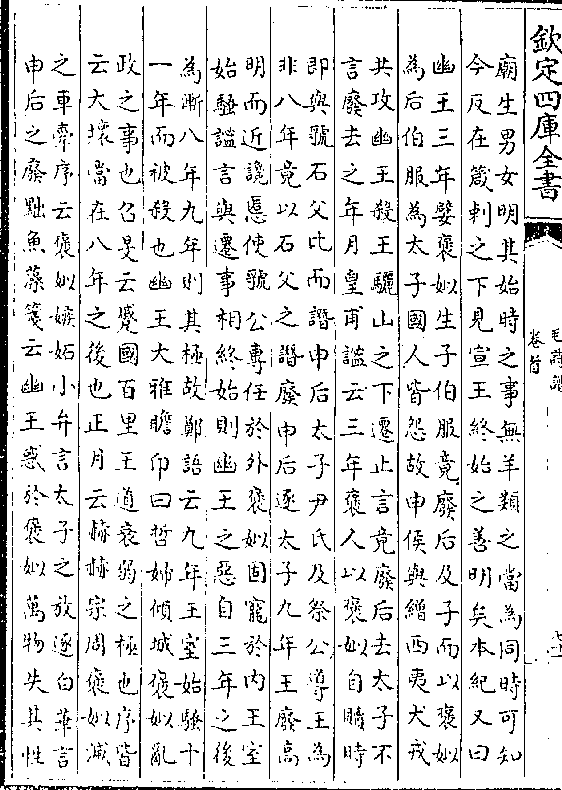 欽定四庫全書
毛詩譜
卷首
廟生男女明其始時之事無羊類之當為同時可知
今反在箴刺之下見宣王終始之善明矣本紀又曰
幽王三年嬖褒姒生子伯服竟廢后及子而以褒姒
為后伯服為太子國人皆怨故申侯與繒西夷犬戎
共攻幽王殺王驪山之下遷止言竟廢后去太子不
言廢去之年月皇甫謐云三年褒人以褒姒自贖時
即與虢石父比而譖申后太子尹氏及祭公導王為
非八年竟以石父之譖廢申后逐太子九年王廢高
明而近讒慝使虢公專任於外褒姒固寵於内王室
始騷謐言與遷事相終始則幽王之惡自三年之後
為漸八年九年則其極故鄭語云九年王室始騷十
一年而被殺也幽王大雅瞻卬曰哲婦傾城褒姒亂
政之事也召旻云蹙國百里王道衰弱之極也序皆
云大壞當在八年之後也正月云赫赫宗周褒姒滅
之車舝序云褒姒嫉妬小弁言太子之放逐白華言
申后之廢黜魚藻箋云幽王惑於褒姒萬物失其性